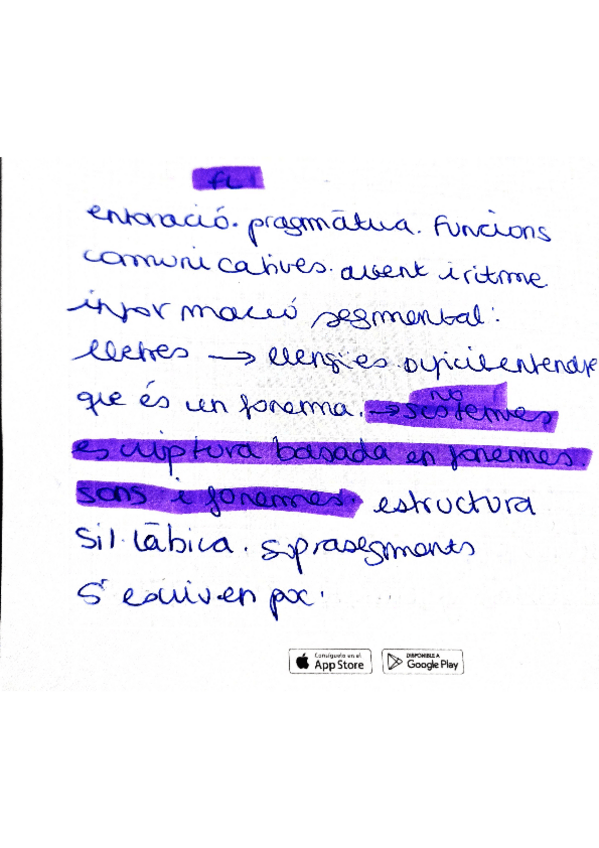 entonació. pragmàtica. Funcions
comunicatives. accent i ritme
informació segmental:
lletres → llengües difícil entendre
que és un fonema. → sistemes
no
escriptura basada en fonemes.
sons i fonemes. estructura
sil·làbica. suprasegments
s'escriuen poc.
Consíguelo en el
App Store
DISPONIBLE A
Google Play